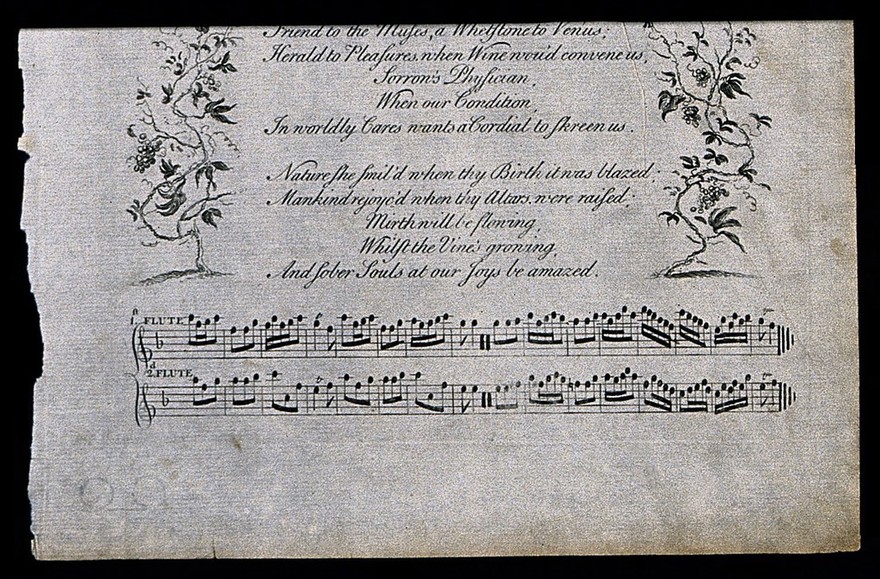 Friend to the Muſes, a Whetſtone to Venus;
Herald to Pleaſures, when Wine wou'd convene us,
Sorron's Phyſician,
When our Condition,
In worldly Cares wants a Cordial to ſkreen us.
Nature ſhe ſmil'd when thy Birth it was blazed;
Mankind rejoyc'd when thy Altars were raiſed;
Mirth will be flowing,
Whilſt the Vine's growing,
And ſober Souls at our Joys be amazed.
1.st FLUTE
2.d FLUTE